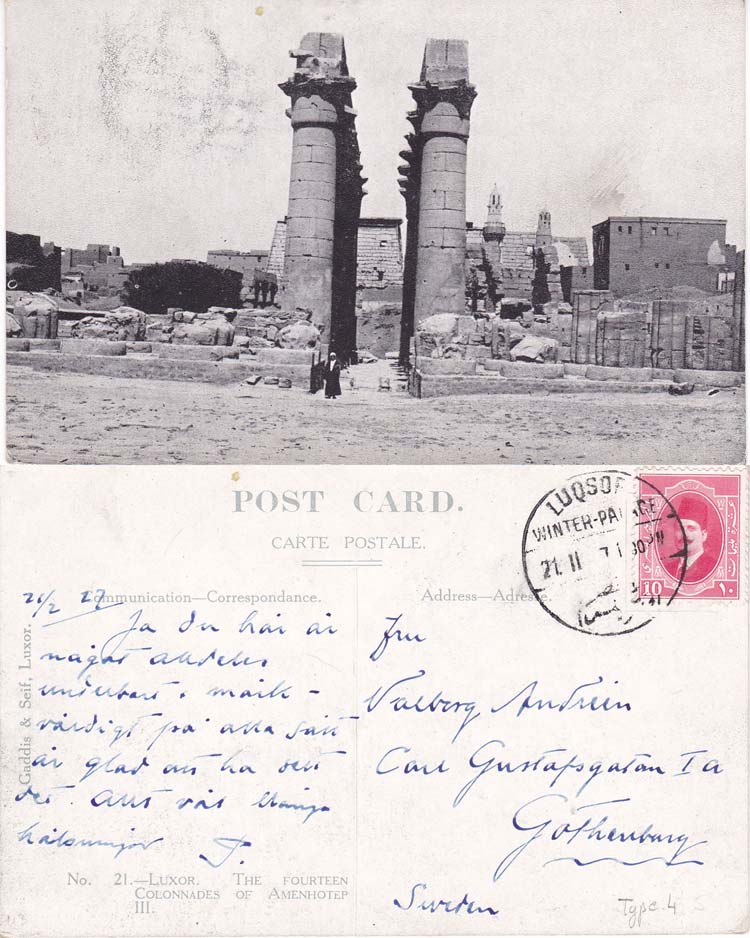 POST CARD.
CARTE POSTALE.
LUQSOR
WINTER-PALACE
21. II
10
١٠
21/2 27
Communication—Correspondance.
Address—Adresse.
Gaddis & Seif, Luxor.
Ja du här är
något alldeles
underbart o märk-
värdigt på alla sätt
är glad att ha sett
det. Allt väl Många
hälsningar
Fru
Valborg Andreen
Carl Gustafsgatan 1a
Gothenburg
Sweden
No. 21.—LUXOR. THE FOURTEEN
COLONNADES OF AMENHOTEP
III.
Type 4